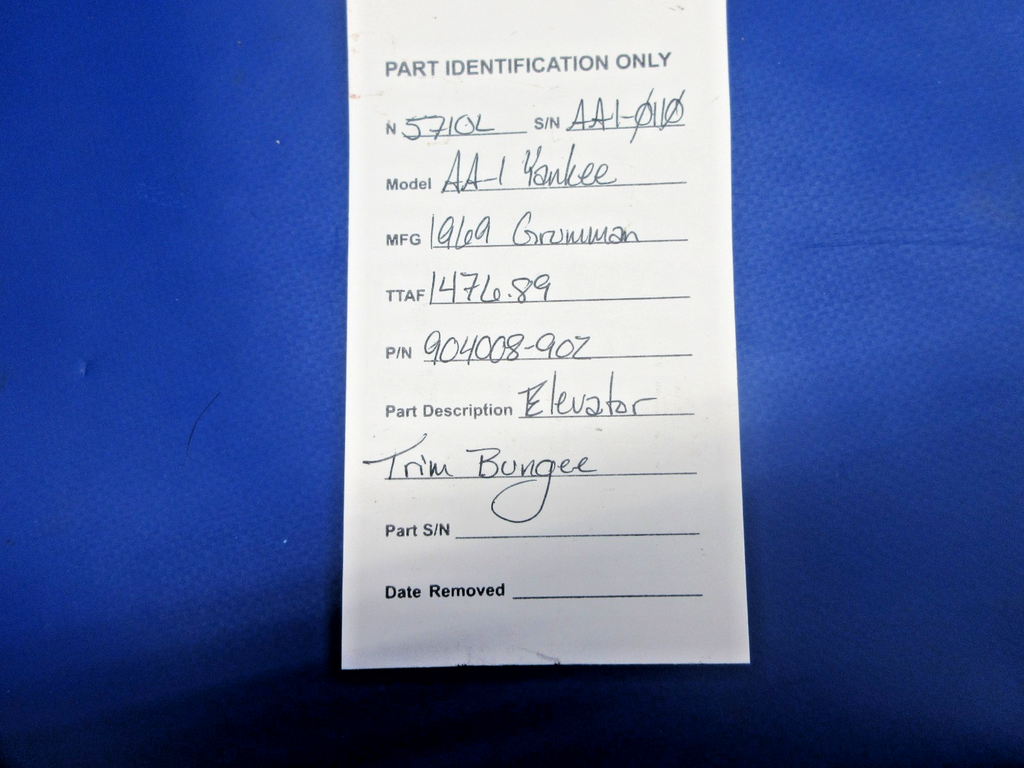 PART IDENTIFICATION ONLY
N 5710L S/N AA1-0110
Model AA-1 Yankee
MFG 1969 Grumman
TTAF 1476.89
P/N 904008-902
Part Description Elevator
Trim Bungee
Part S/N
Date Removed